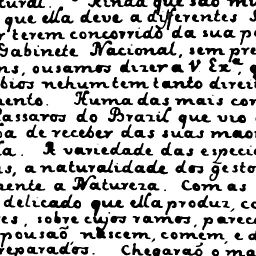 tural. Ainda que são mu
que ella deve a differentes
terem concorrido da sua p
Gabinete Nacional, sem pre
ns, ousamos dizer a V. Exª, q
bios nehum tem tanto direi
mento. Huma das mais cor
Passaros do Brazil que vio
ba de receber das suas maõ
la. A variedade das especi
s, a naturalidade dos gesto
mente a Natureza. Com as
delicado que ella produz, co
es, sobre cujos ramos, parec
pousaõ nascem, comem, e d
reparados. Chegaraõ o ma